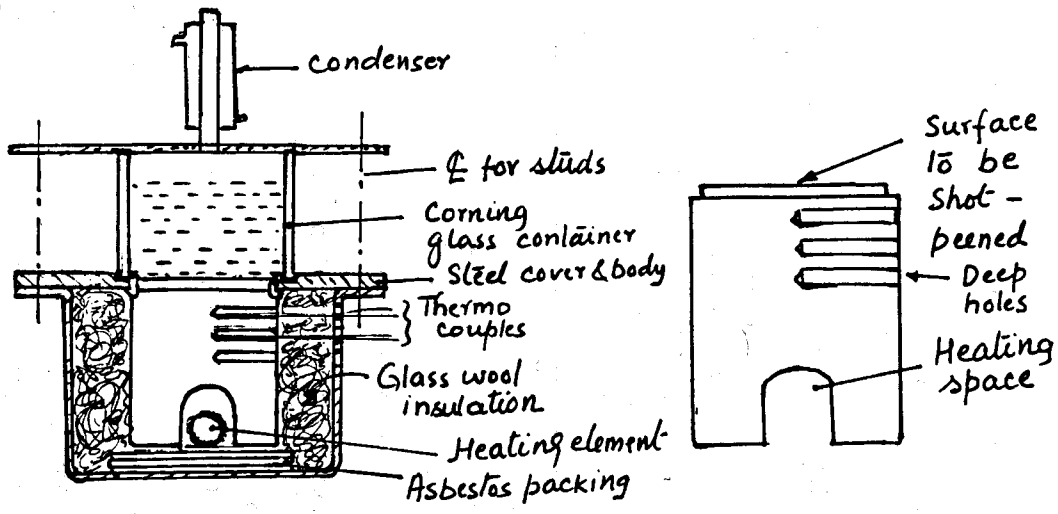 condenser
℄ for studs
Corning
glass container
Steel cover & body
Thermo
couples
Glass wool
insulation
Heating element
Asbestos packing
Surface
to be
Shot -
peened
Deep
holes
Heating
space